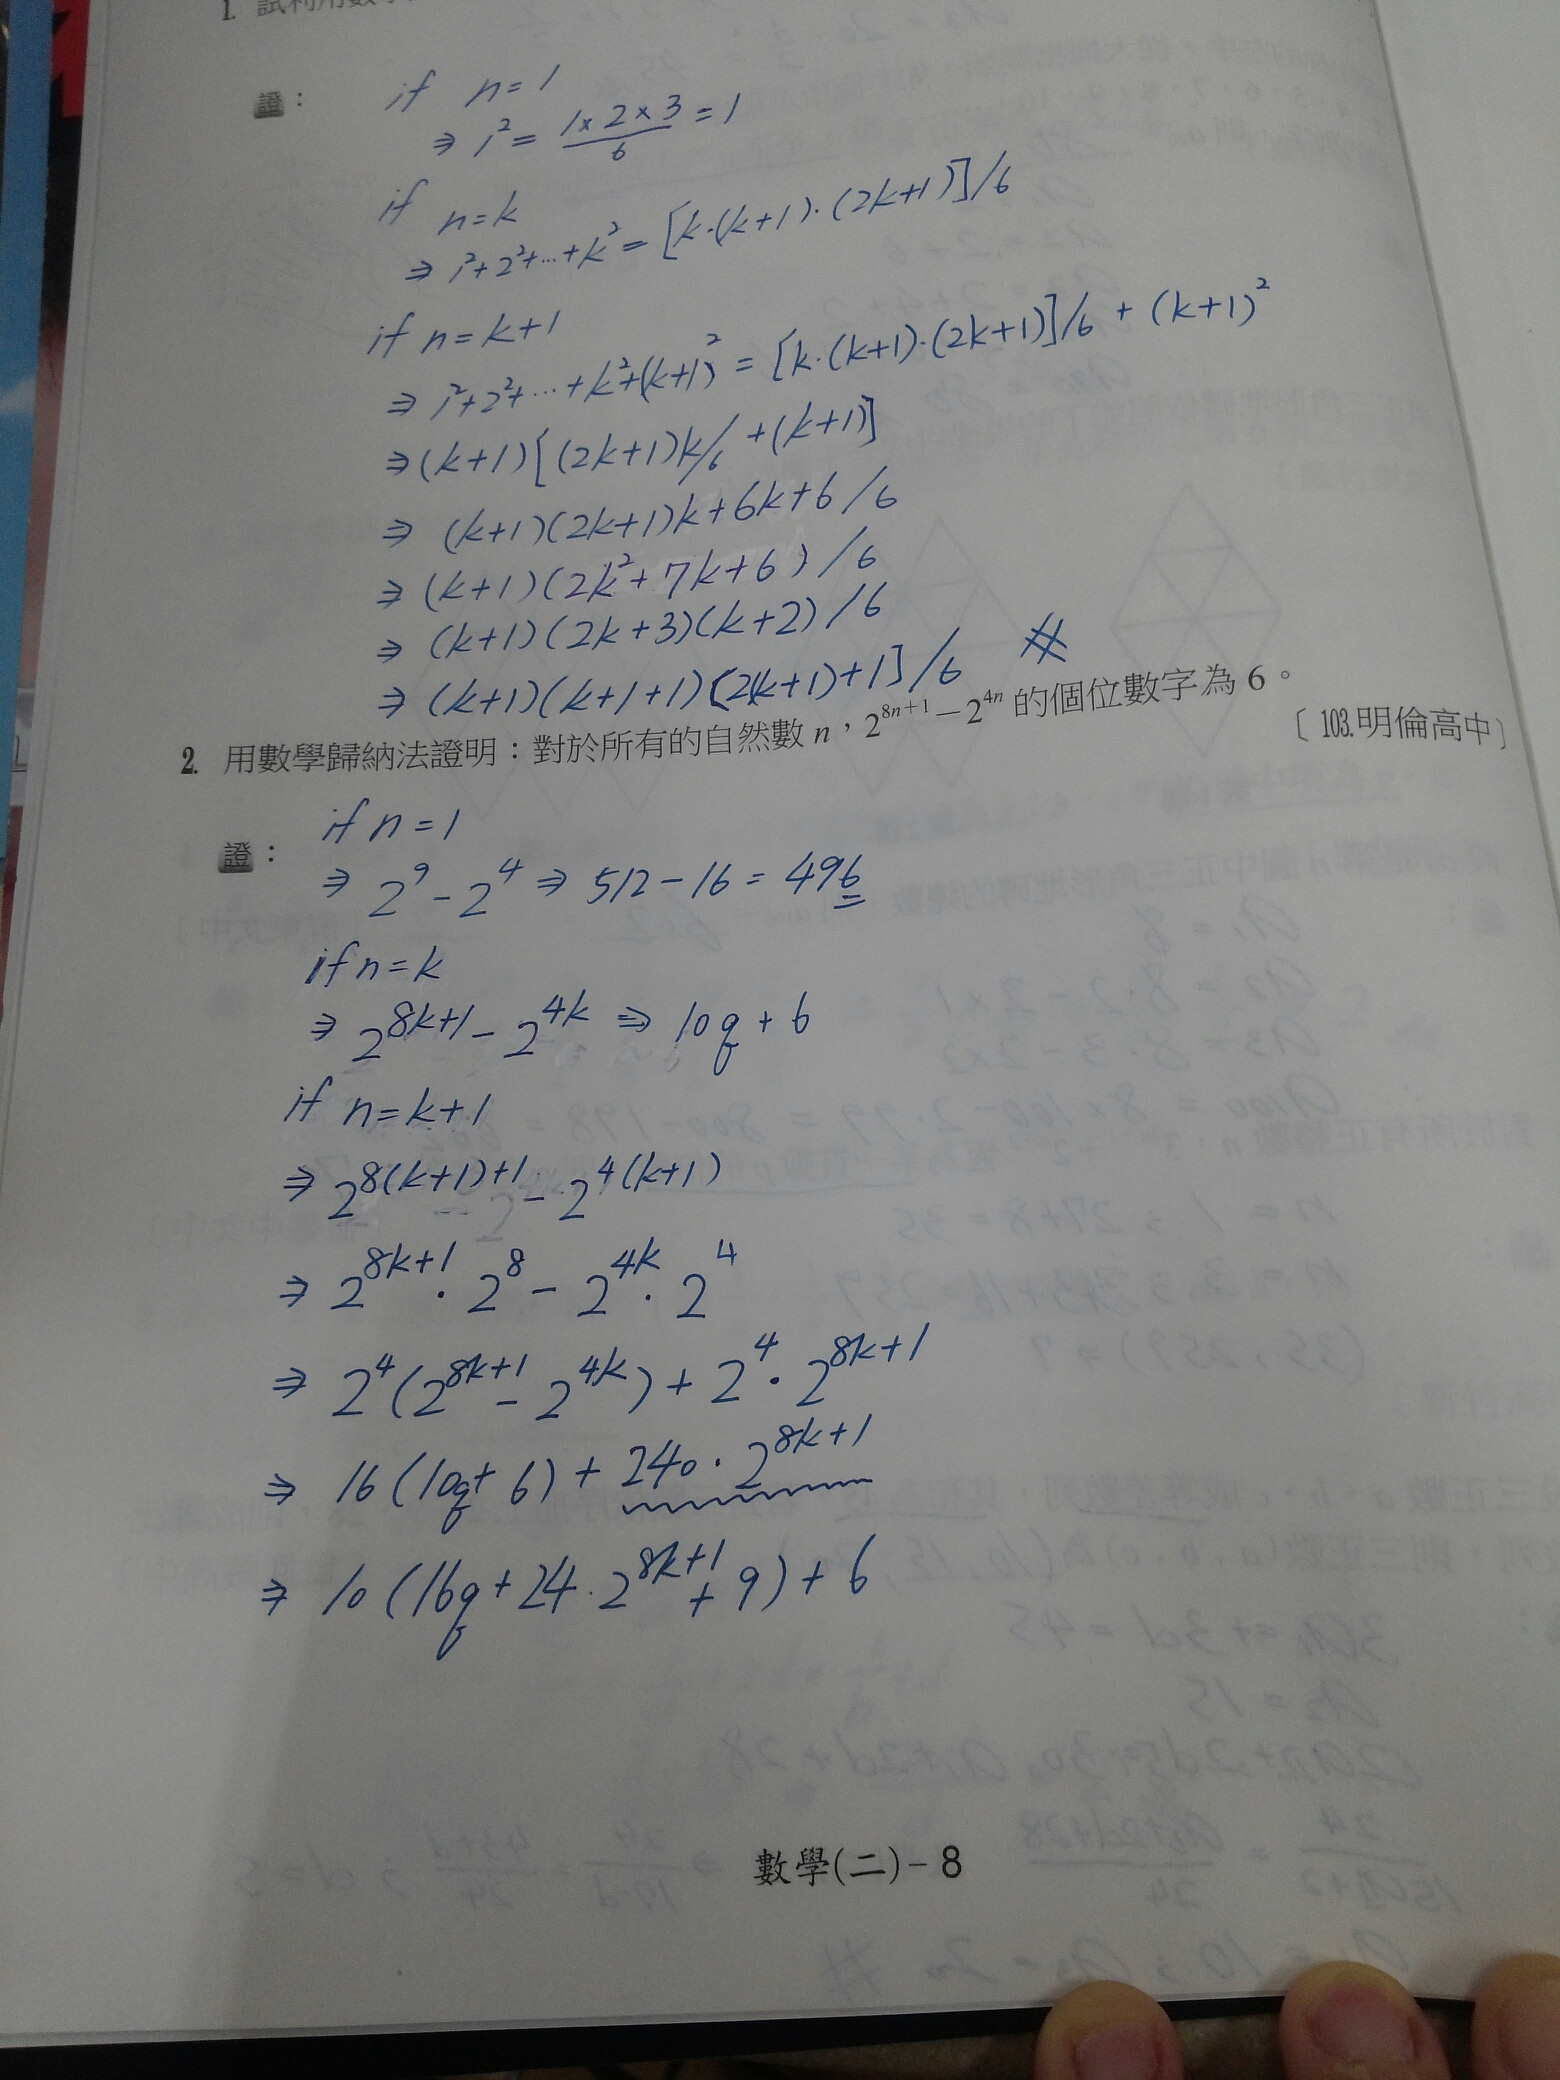 1. 試利用數學
證： if n=1
⇒ 1²= (1×2×3)/6 = 1
if n=k
⇒ 1²+2²+…+k² = [k·(k+1)·(2k+1)]/6
if n=k+1
⇒ 1²+2²+…+k²+(k+1)² = [k·(k+1)·(2k+1)]/6 + (k+1)²
⇒ (k+1)[(2k+1)k/6 +(k+1)]
⇒ (k+1)(2k+1)k+6k+6/6
⇒ (k+1)(2k²+7k+6)/6
⇒ (k+1)(2k+3)(k+2)/6
⇒ (k+1)(k+1+1)[2(k+1)+1]/6 #
2. 用數學歸納法證明：對於所有的自然數 n，2^{8n+1}−2^{4n} 的個位數字為 6。
〔103.明倫高中〕
證： if n=1
⇒ 2⁹ − 2⁴ ⇒ 512−16 = 496
if n=k
⇒ 2^{8k+1} − 2^{4k} ⇒ 10q + 6
if n=k+1
⇒ 2^{8(k+1)+1} − 2^{4(k+1)}
⇒ 2^{8k+1}·2⁸ − 2^{4k}·2⁴
⇒ 2⁴(2^{8k+1} − 2^{4k}) + 2⁴·2^{8k+1}
⇒ 16(10q+6) + 240·2^{8k+1}
⇒ 10(16q+24·2^{8k+1}+9)+6
數學(二)−8